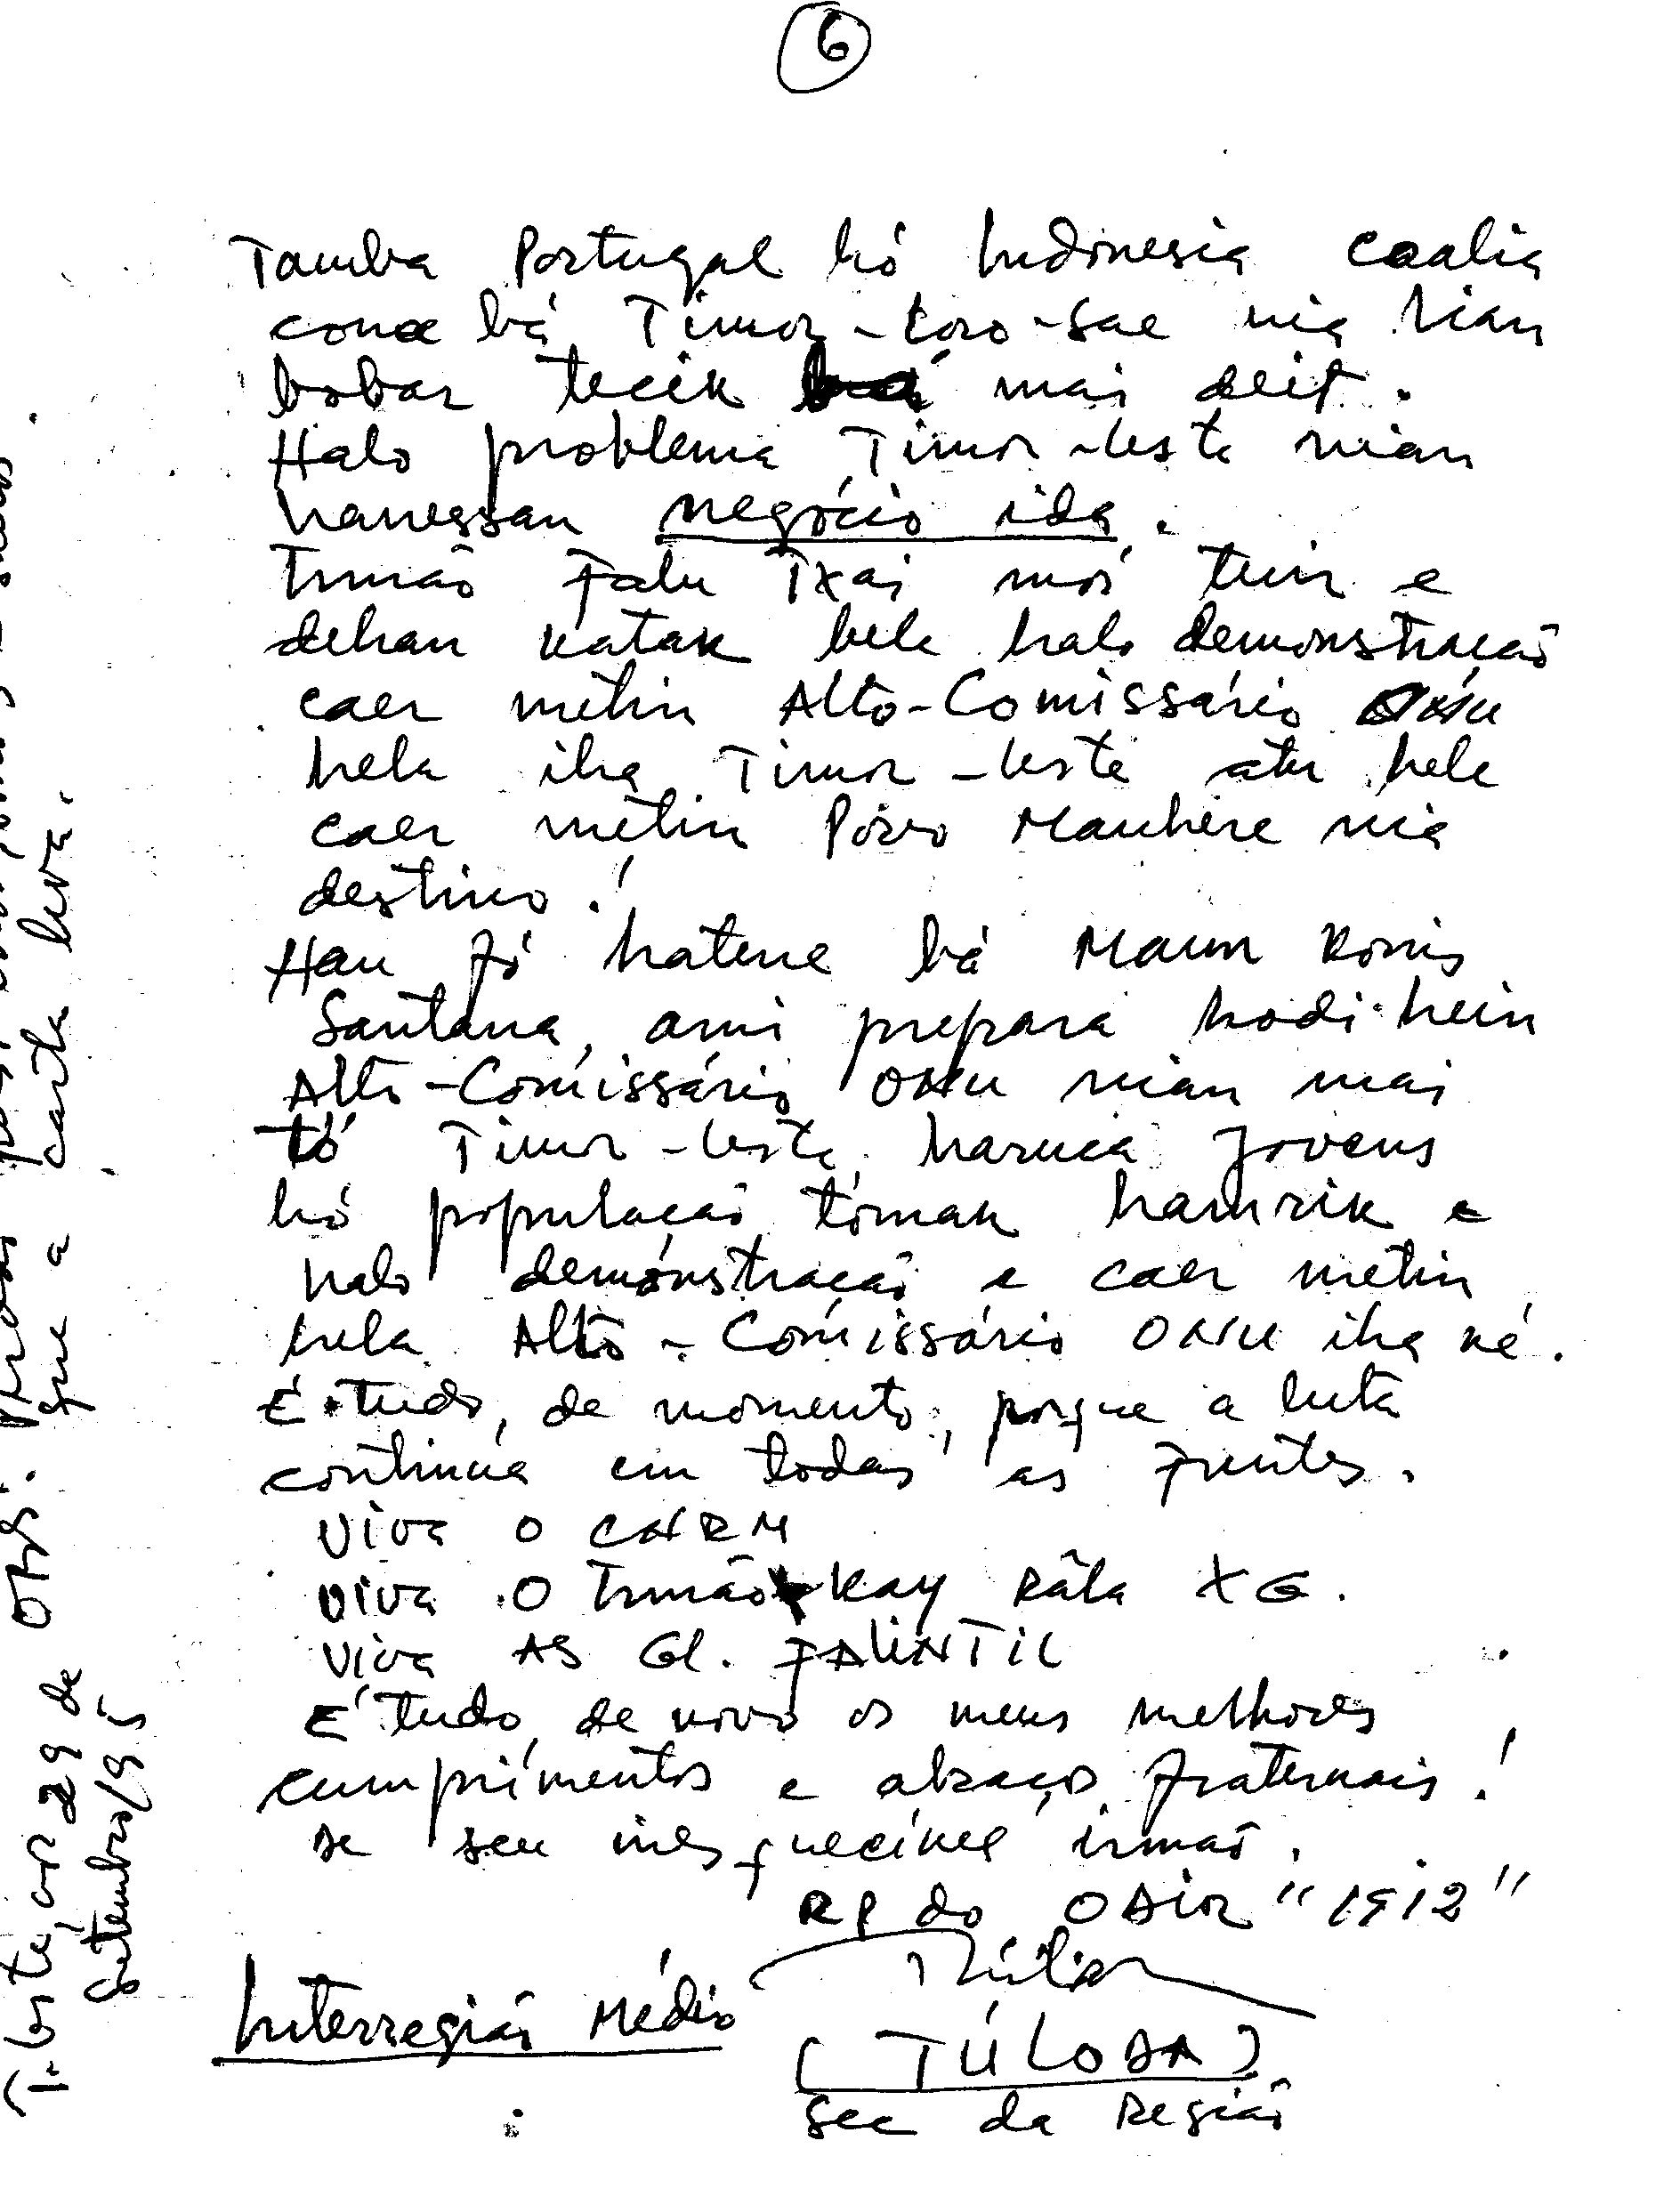 6
Tamba Portugal hó Indonesia coalia
cona bá Timor-Loro-Sae nia lian
bobar tecik mai deit.
Halo problema Timor-Leste nian
hanessan negócio ida.
Irmão Falu Txai mós tuir e
dehan katak bele halo demonstração
caer metin Alto-Comissário ONU
hela iha Timor-Leste atu bele
caer metin Povo Maubere nia
destino!
Hau fó hatene bá Maun Konis
Santana, ami prepara hodi hein
Alto-Comissário ONU nian mai
tó Timor-Leste, haruca Jovens
hó população tomak hamrik e
halo demonstração e caer metin
hela Alto-Comissário ONU iha né.
É tudo, de momento, porque a luta
continua em todas as Frentes.
Viva o CNRM
Viva o Irmão Kay Rala XG.
Viva AS Gl. FALINTIL
É tudo, de novo os meus melhores
cumprimentos e abraços fraternais!
De seu inesquecível irmão.
RP do ODIR "1912"
Interregião Médio
(TÚLODA)
Sec da Região
T. Leste, aos 29 de
Setembro/95
OBS:
que a carta leva.